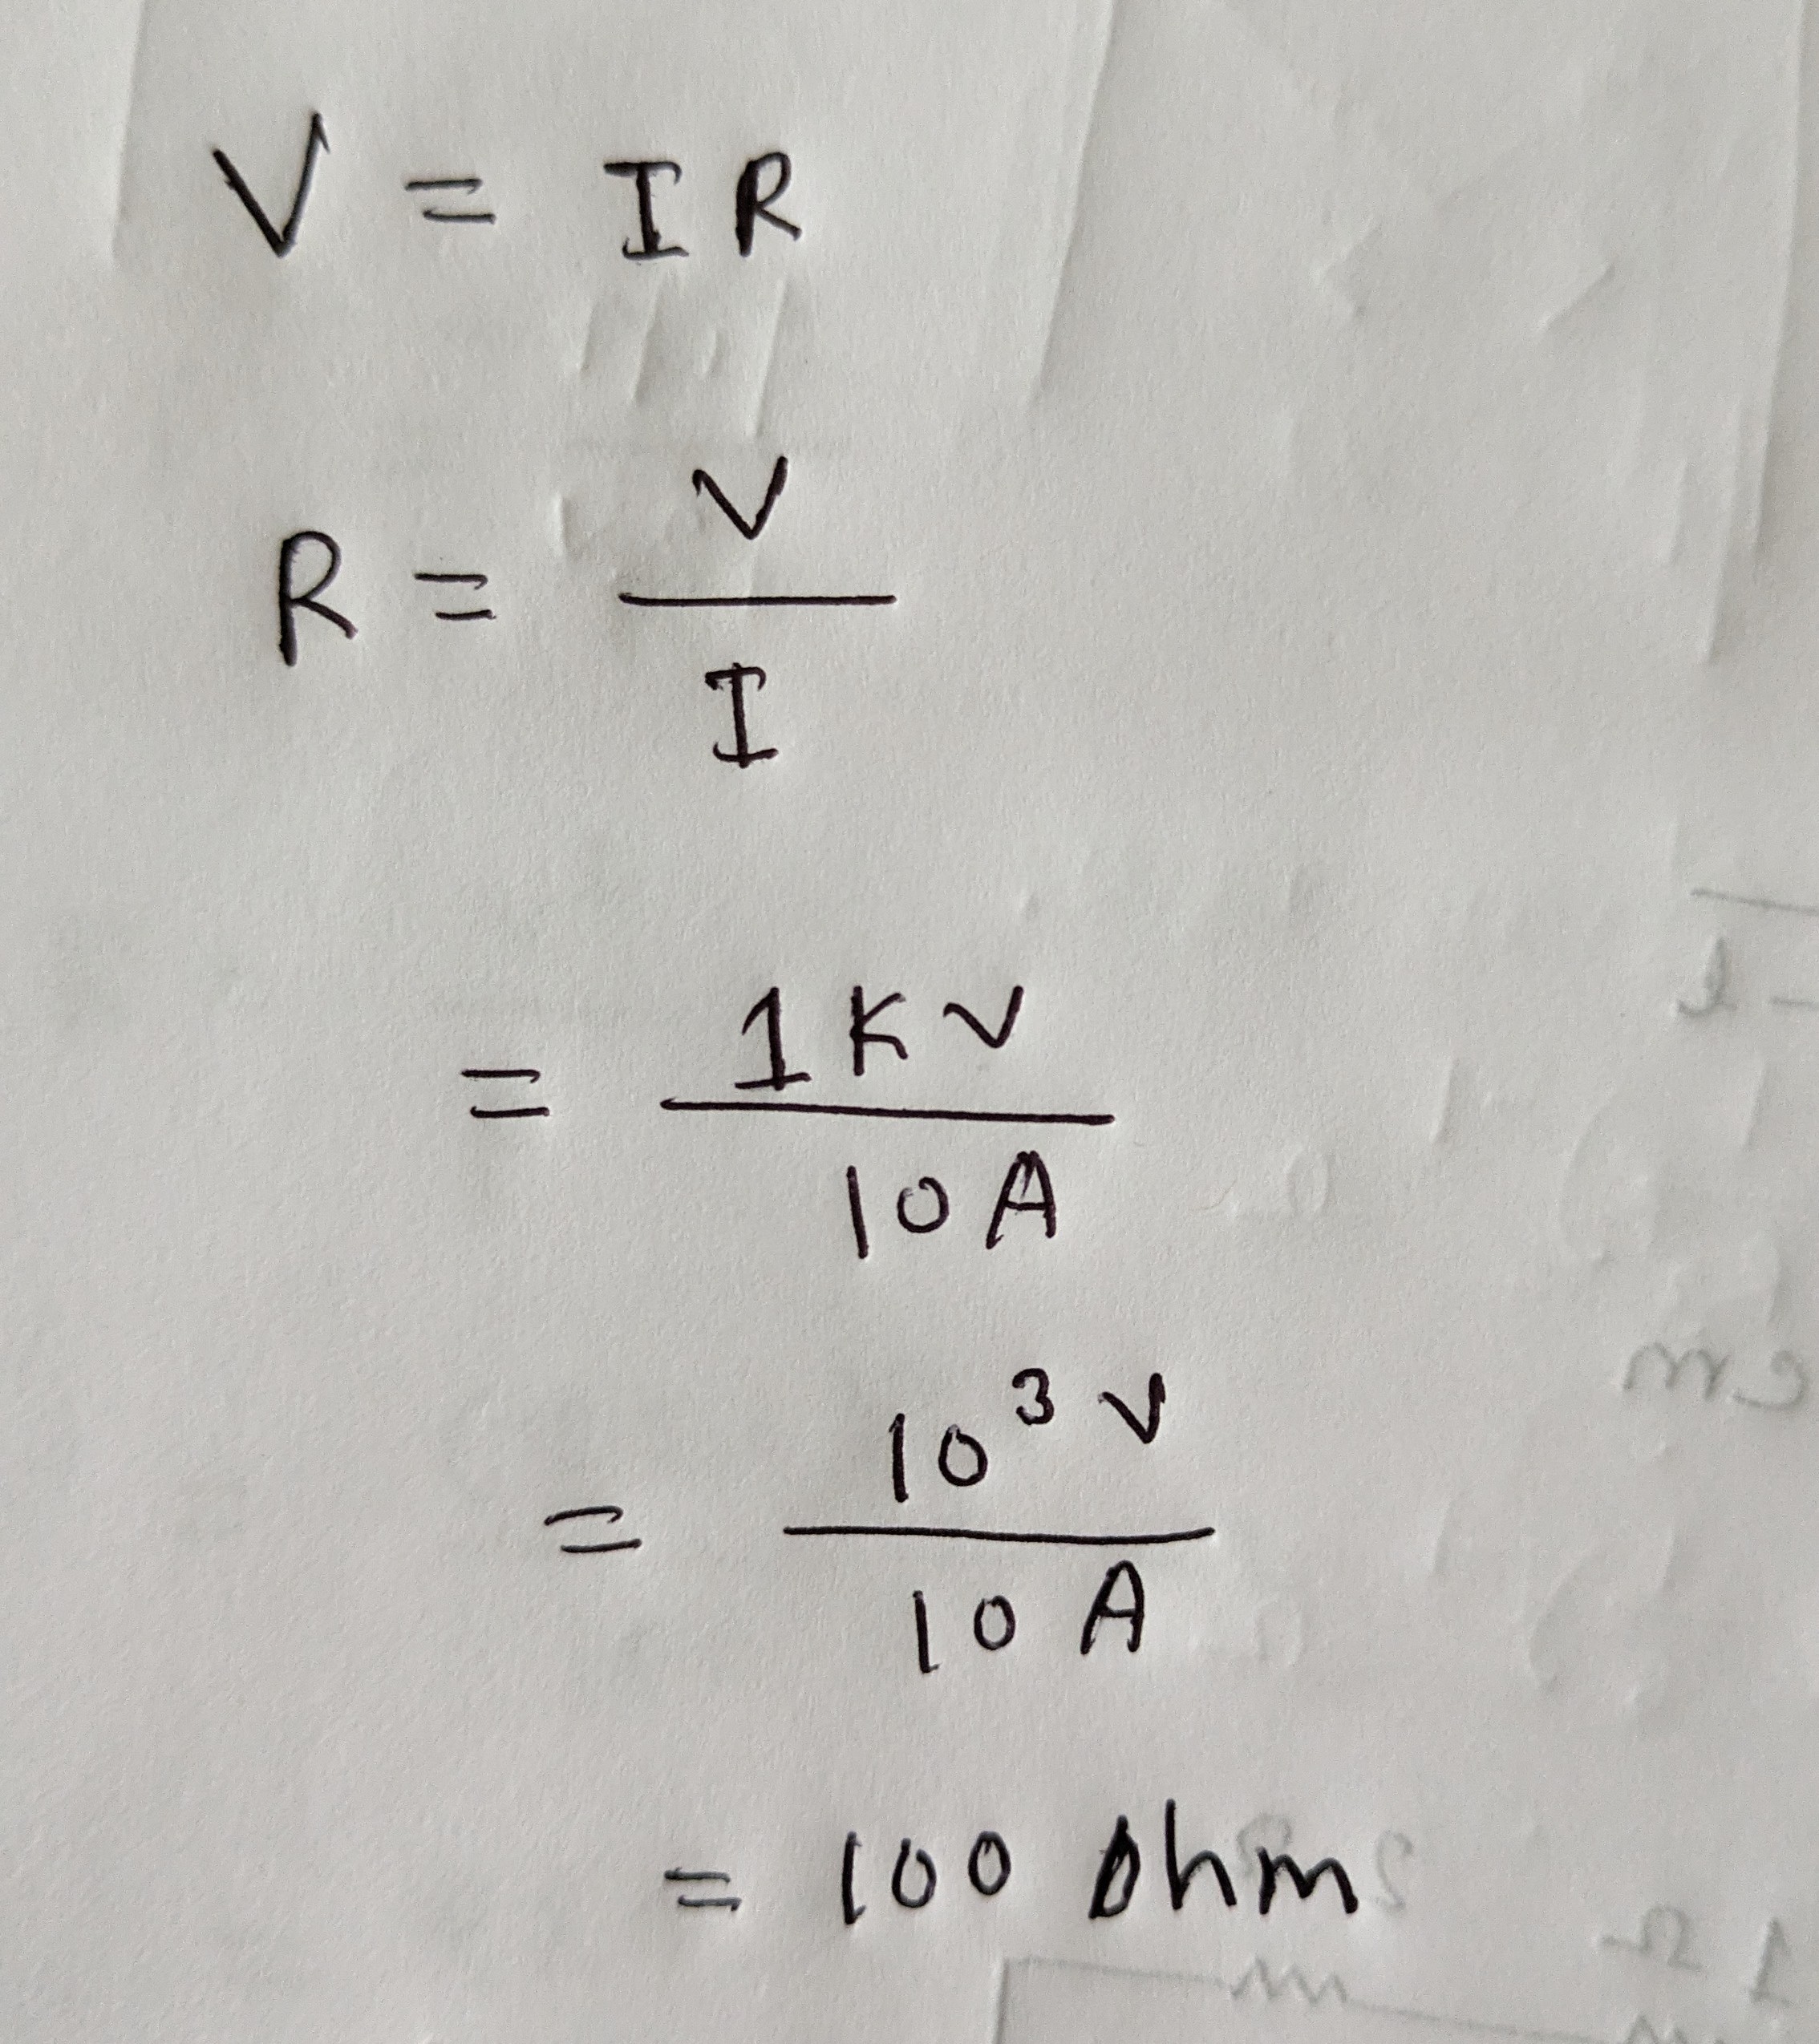 V = I R
R = V / I
= 1 K V / 10 A
= 10³ V / 10 A
= 100 Ohm